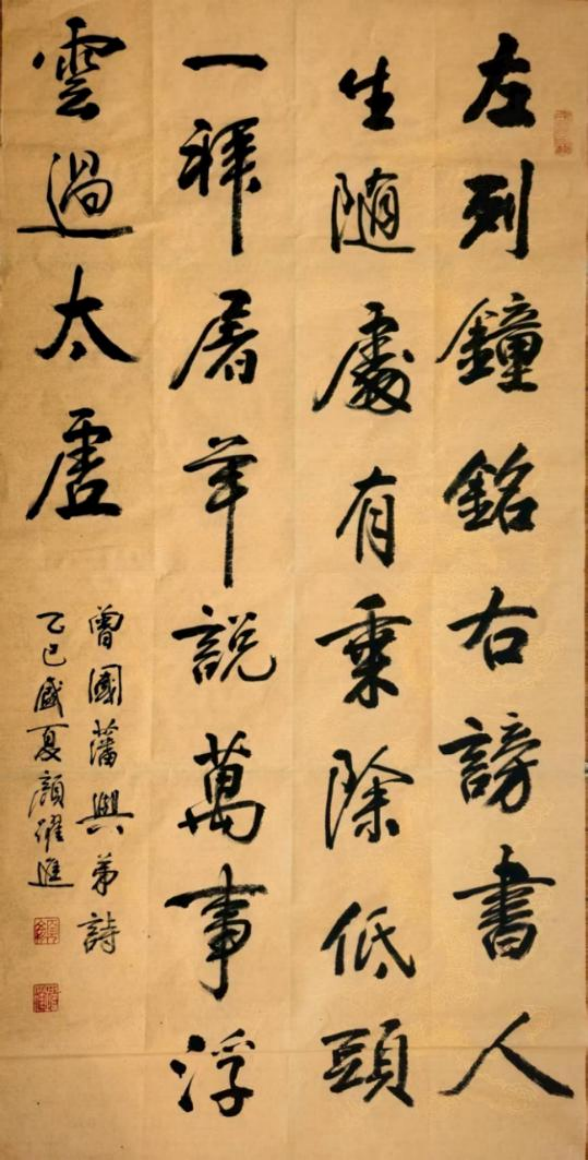 左列鐘銘右謗書人
生随處有乘除低頭
一拜屠羊説萬事浮
雲過太虛
曾國藩與弟詩
乙巳盛夏顏躍進